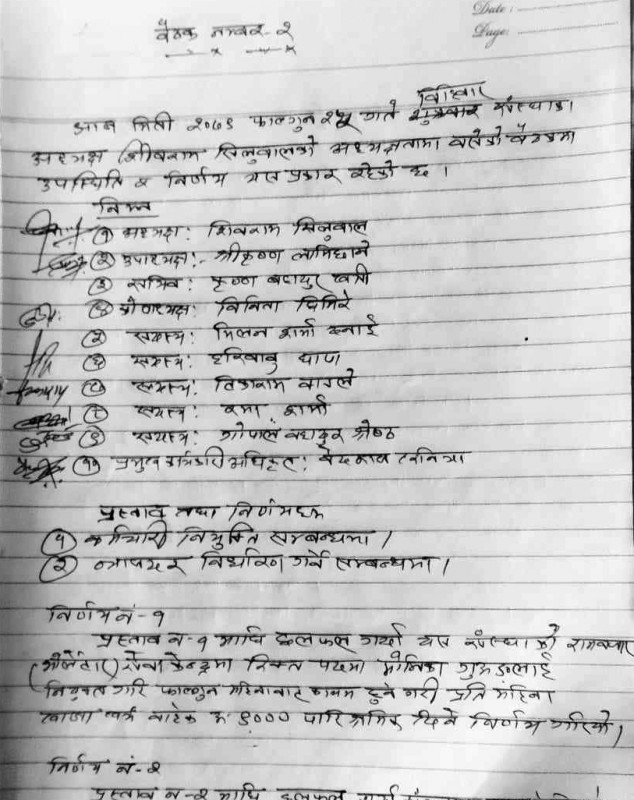 Date :
Page:
बैठक नम्बर - २
बिहिबार
आज मिती २०७९ फाल्गुन २५ गते शुक्रबार संस्थाका
अध्यक्ष शिवराम सिलुवालको अध्यक्षतामा बसेको बैठकमा
उपस्थिति र निर्णय यस प्रकार रहेको छ ।
निम्न
① अध्यक्ष: शिवराम सिलुवाल
② उपाध्यक्ष:- श्रीकृष्ण लामिछाने
③ सचिव: कृष्ण बहादुर खत्री
④ कोषाध्यक्ष: विनिता घिमिरे
⑤ सदस्य: मिलन शर्मा
⑥ सदस्य: हरिबाबु थापा
⑦ सदस्य: वाग्ले
⑧ सदस्य: रमा शर्मा
⑨ सदस्य: गोपाल बहादुर श्रेष्ठ
⑩ प्रमुख कार्यकारी अधिकृत:
प्रस्ताव तथा निर्णयहरू
① कर्मचारी नियुक्ति सम्बन्धमा ।
② ब्याजदर निर्धारण गर्ने सम्बन्धमा ।
निर्णय नं - १
प्रस्ताव नं - १ माथि छलफल गर्दा यस संस्थाको
सेवा केन्द्रमा रिक्त पदमा मोनिका गुरुङलाई
नियुक्त गरि फाल्गुन महिनाबाट कायम हुने गरी प्रति महिना
खाजा खर्च बाहेक रु ९००० पारिश्रमिक दिने निर्णय गरियो ।
निर्णय नं - २
प्रस्ताव नं - २ माथि छलफल गर्दा